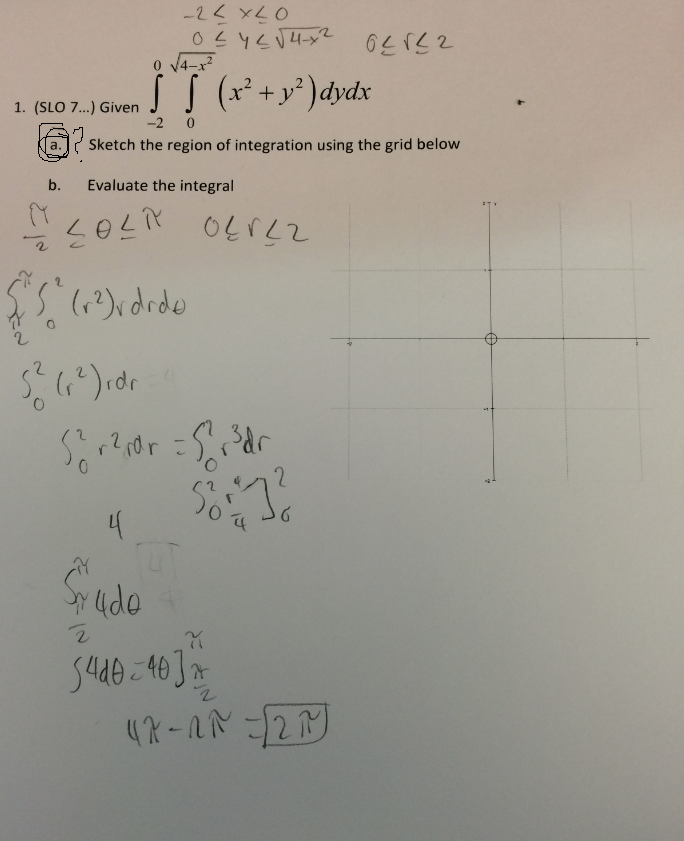 -2 ≤ x ≤ 0
0 ≤ y ≤ √4-x²   0 ≤ r ≤ 2
1. (SLO 7...) Given ∫_{-2}^{0} ∫_{0}^{√4-x²} (x² + y²) dydx
a. ? Sketch the region of integration using the grid below
b. Evaluate the integral
π/2 ≤ θ ≤ π   0 ≤ r ≤ 2
∫_{π/2}^{π} ∫_{0}^{2} (r²) r dr dθ
∫_{0}^{2} (r²) r dr
∫_{0}^{2} r² r dr = ∫_{0}^{2} r³ dr
4   ∫_{0}^{2} r⁴/4 ]_{0}^{2}
∫_{π/2}^{π} 4dθ
∫4dθ = 4θ ]_{π/2}^{π}
4π - 2π = 2π